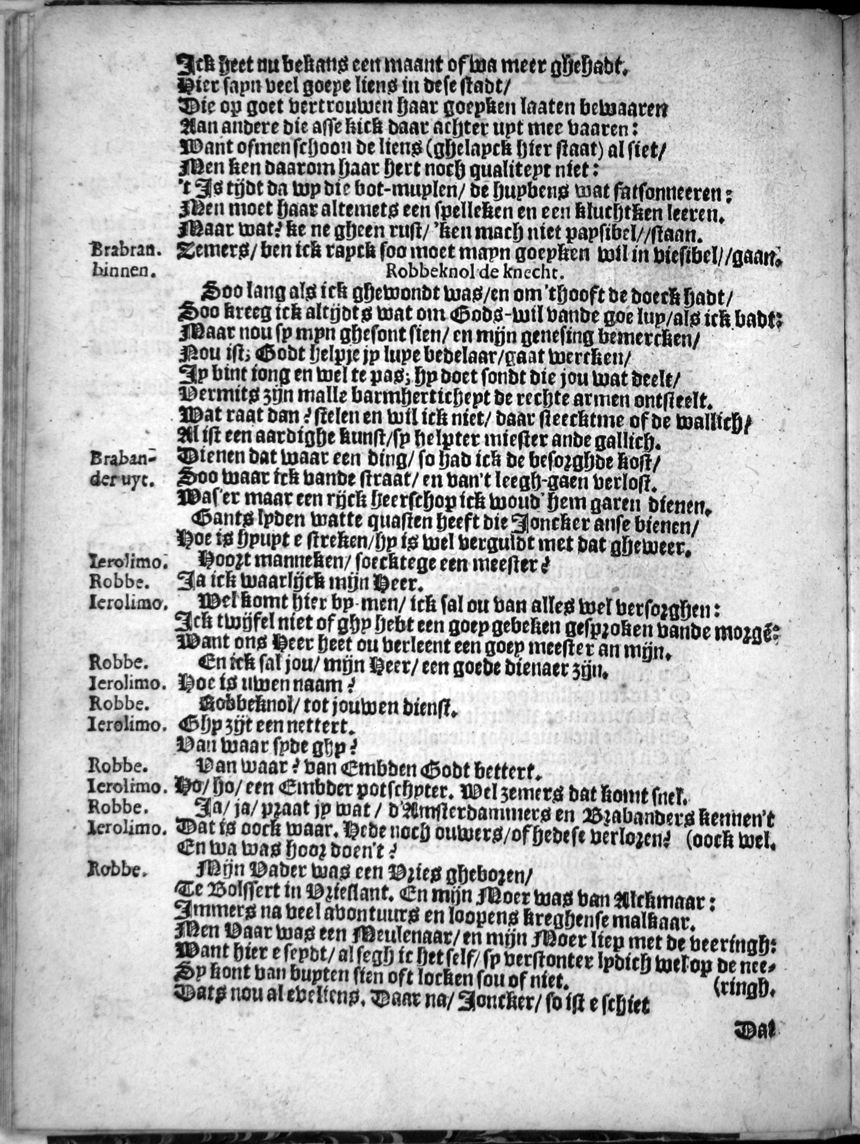 Ick heet nu bekans een maant of wa meer ghehadt.
Hier sayn veel goeye liens in dese stadt/
Die op goet vertrouwen haar goeyken laaten bewaaren
Aan andere die asse kick daar achter uyt mee vaaren:
Want ofmen schoon de liens (ghelayck hier staat) al siet/
Men ken daarom haar hert noch qualiteyt niet:
't Is tijdt da wy die bot-muylen/ de huybens wat fatsonneeren:
Men moet haar altemets een spelleken en een kluchtken leeren.
Maar wat? ke ne gheen rust/ 'ken mach niet paysibel//staan.
Brabran. Temers/ ben ick rayck soo moet mayn goeyken wil in viesibel//gaan.
binnen. Robbeknol de knecht.
Soo lang als ick ghewondt was/en om 'thooft de doeck hadt/
Soo kreeg ick altijdts wat om Gods-wil vande goe luy/als ick badt:
Maar nou sy myn ghesont sien/ en mijn genesing bemercken/
Nou ist; Godt helpje jy luye bedelaar/gaat wercken/
Jy bint iong en wel te pas; hy doet sondt die jou wat deelt/
Vermits zijn malle barmherticheyt de rechte armen ontsteelt.
Wat raat dan? stelen en wil ick niet/ daar steecktme of de wallich/
Al ist een aardighe kunst/sy helpter miester ande gallich.
Braban- Dienen dat waar een ding/ so had ick de besorghde kost/
der uyt. Soo waar ick vande straat/ en van't leegh-gaen verlost.
Was'er maar een rijck heerschop ick woud' hem garen dienen.
Gants lyden watte quasten heeft die Joncker anse bienen/
Hoe is hyupt e streken/hy is wel verguldt met dat gheweer.
Ierolimo. Hoort manneken/ soecktege een meester?
Robbe. Ja ick waarlijck mijn Heer.
Ierolimo. Wel komt hier by-men/ ick sal ou van alles wel versorghen:
Ick twijfel niet of ghy hebt een goey gebeken gesproken vande morgē:
Want ons Heer heet ou verleent een goey meester an mijn.
Robbe. En ick sal jou/ mijn Heer/ een goede dienaer zijn.
Ierolimo. Hoe is uwen naam?
Robbe. Robbeknol/ tot jouwen dienst.
Ierolimo. Ghy zijt een nettert.
Van waar syde ghy?
Robbe. Van waar? van Embden Godt bettert.
Ierolimo. Ho/ ho/ een Embder potschyter. Wel zemers dat komt snel.
Robbe. Ja/ ja/ praat jy wat/ d'Amsterdammers en Brabanders kennen't
Ierolimo. Dat is oock waar. Hede noch ouwers/of hedese verloren? (oock wel.
En wa was hoor doen't?
Robbe. Mijn Vader was een Vries gheboren/
Te Bolssert in Vrieslant. En mijn Moer was van Alckmaar:
Immers na veel avontuurs en loopens kreghense malkaar.
Men Vaar was een Meulenaar/ en mijn Moer liep met de veeringh:
Want hier e seydt/ al segh ic het self/ sy verstonter lydich wel op de nee-
Sy kont van buyten sien oft locken sou of niet. (ringh.
Dats nou al eveliens. Daar na/ Joncker/ so ist e schiet
Dat